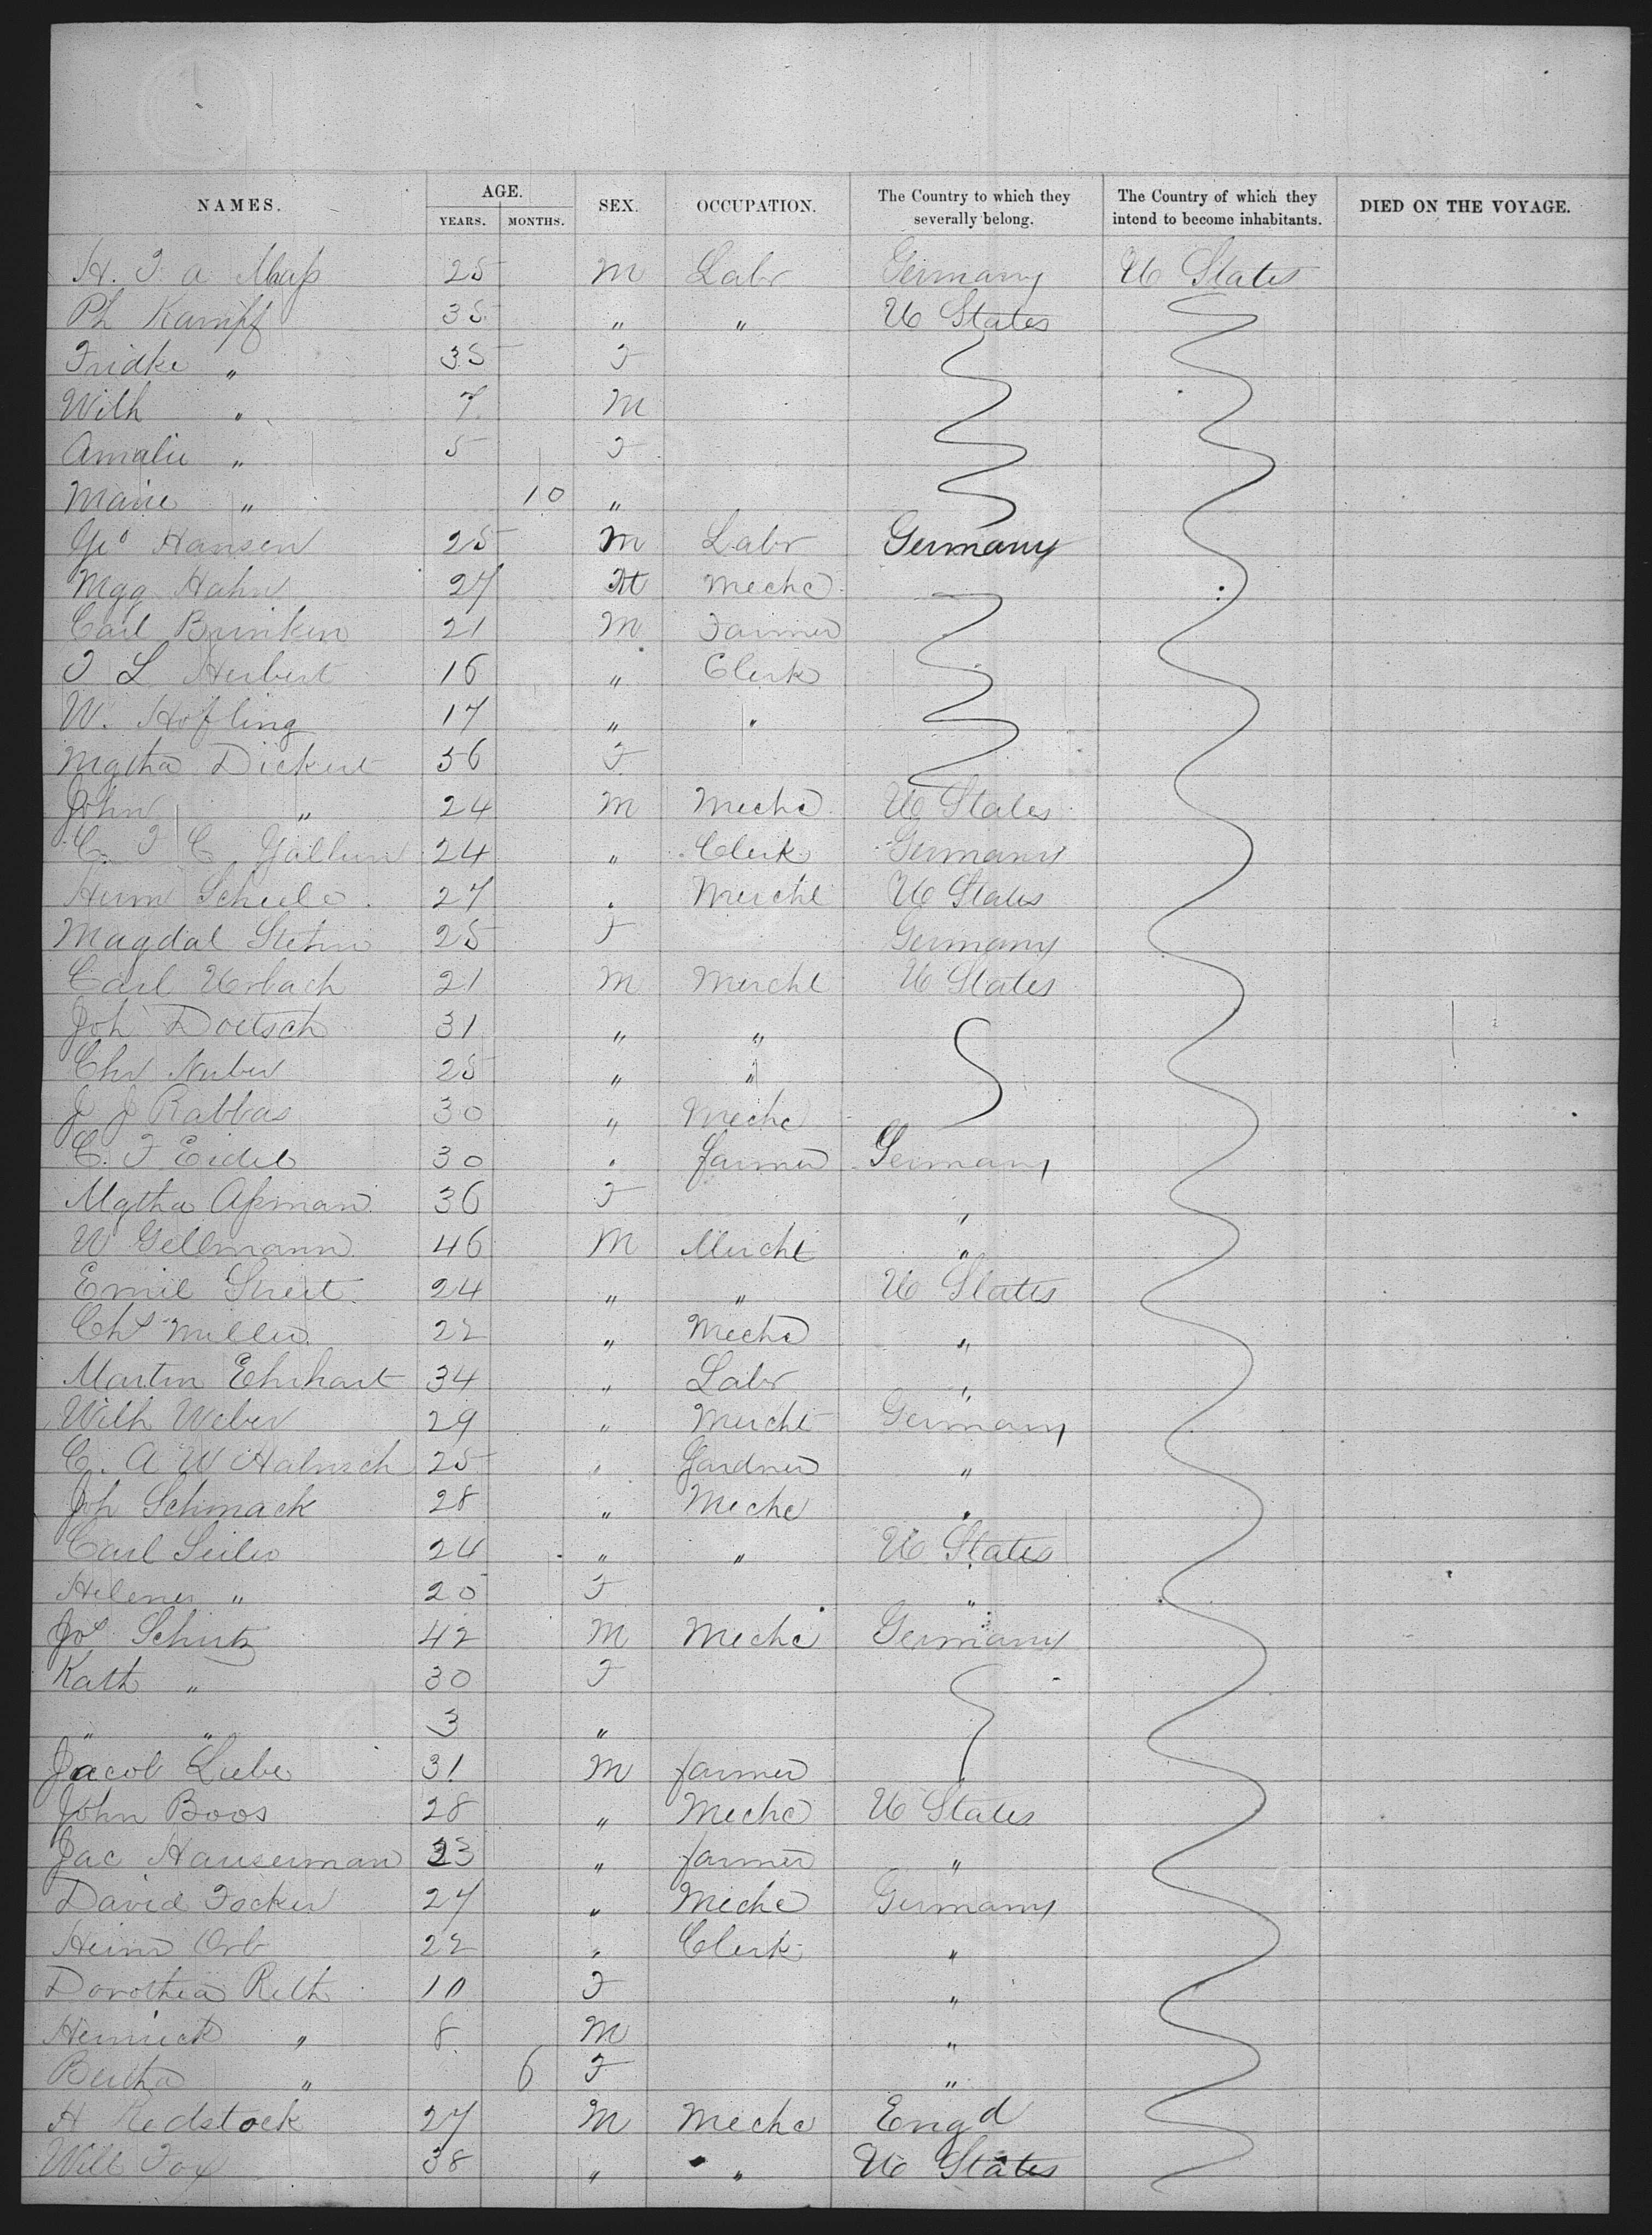 NAMES. AGE. SEX. OCCUPATION. The Country to which they severally belong. The Country of which they intend to become inhabitants. DIED ON THE VOYAGE.
YEARS. MONTHS.
H. F. A 25 M Labr Germany U States
Ph Kampff 35 " " U States
Fridke " 35 F
Wilh " 7 M
Amalie " 5 F
Marie " 10 "
Geo Hansen 25 M Labr Germany
Mgg Hahn 27 M Mechc
Carl Brinken 21 M Farmer
F L Herbert 16 " Clerk
W. Hofling 17 " "
Mgtha Dickert 56 F
John " 24 M Mechc U States
C. F C Gallun 24 " Clerk Germany
Herm Scheele 27 " Mercht U States
Magdal Stehn 25 F Germany
Carl Urbach 21 M Mercht U States
Joh Doetsch 31 " "
Chr Nuber 25 " "
J J Rabbas 30 " Mechc
C. F Eidel 30 " farmer Germany
Mgtha Assman 36 F "
W Gellmann 46 M Mercht "
Emil Streit 24 " " U States
Chs Miller 22 " Mechc "
Martin Ehrhart 34 " Labr "
Wilh Weber 29 " Mercht Germany
C. A W 25 " Gardner "
Joh Schmack 28 " Mechc "
Carl Seiler 24 " " U States
Helene " 20 F "
Jos Schutz 42 M Mechc Germany
Kath " 30 F
" " 3 "
Jacob Luber 31 M farmer
John Boos 28 " Mechc U States
Jac Hauserman " farmer "
David Focker 27 " Mechc Germany
Heinr Orb 22 " Clerk "
Dorothea Reth 10 F "
Heinrich " 8 M "
Bertha " 6 F "
H Redstock 27 M Mechc Engd
Will Fox 38 " " U States